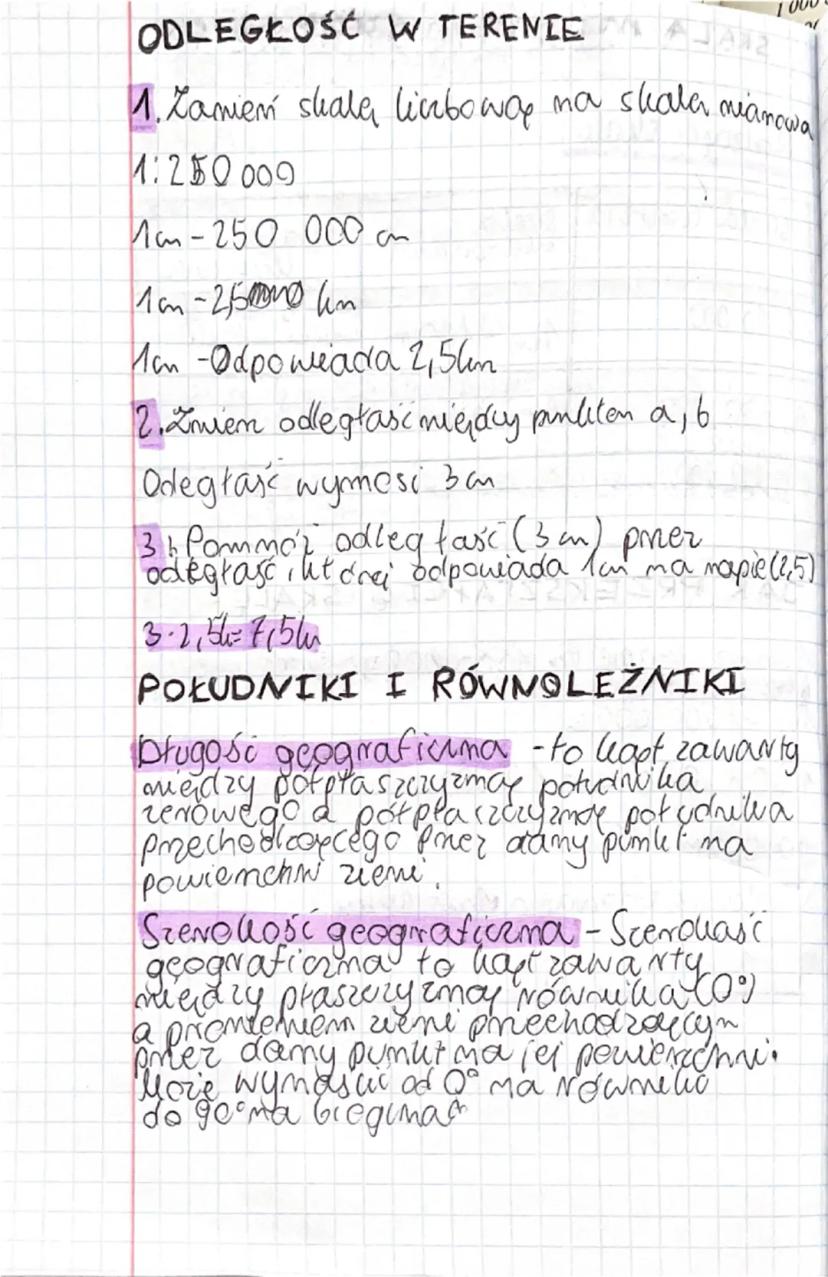 ODLEGŁOŚĆ W TERENIE
1. Zamień skalę liczbową na skalę mianowa
1:250 000
1cm - 250 000 cm
1cm - 2,5 km
1cm - Odpowiada 2,5km
2. Zmierz odległość między punktem a, b
Odegłość wynosi 3 cm
3. Pomnóż odległość (3 cm) przez
odległość, której odpowiada 1cm na mapie (2,5)
3·2,5k= 7,5km
POŁUDNIKI I RÓWNOLEŻNIKI
Długość geograficzna - to kąt zawarty
między półpłaszczyzną południka
zerowego a półpłaszczyzną południka
przechodzącego przez dany punkt na
powierzchni ziemi.
Szerokość geograficzna - Szerokość
geograficzna to kąt zawarty
między płaszczyzną równika (0°)
a promieniem ziemi przechodzącym
przez dany punkt na jej powierzchni.
Może wynosić od 0° na równiku
do 90° na biegunach
1 000